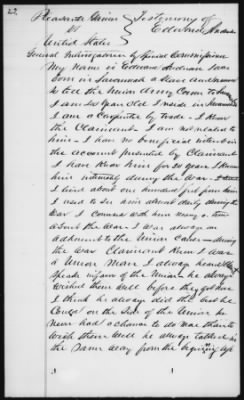 22.
Testimony of
vs
United States
General Interrogation by Special Commissioner
My name is Edward
born in Savannah a Slave and
to till the Union Army Came to
I am years old I reside in Savannah
I am a Carpenter by trade - I know
the Claimant - I am not related to
him - I have no beneficial interest in
the account presented by Claimant
I have Known him for 20 years I Knew
him intimately during the War - I
lived about one hundred feet from him
I used to see him almost daily during the
War I conversed with him many a time
about the War - I was always an
adherent to the Union Cause - during
the War Claimant was
a Union Man, I always heard him
speak in favor of the Union he always
wished them well before they got here
I think he always did the best he
Could on the side of the Union he
never had a chance to do more than to
wish them well he always talked in
the same way from the beginning up